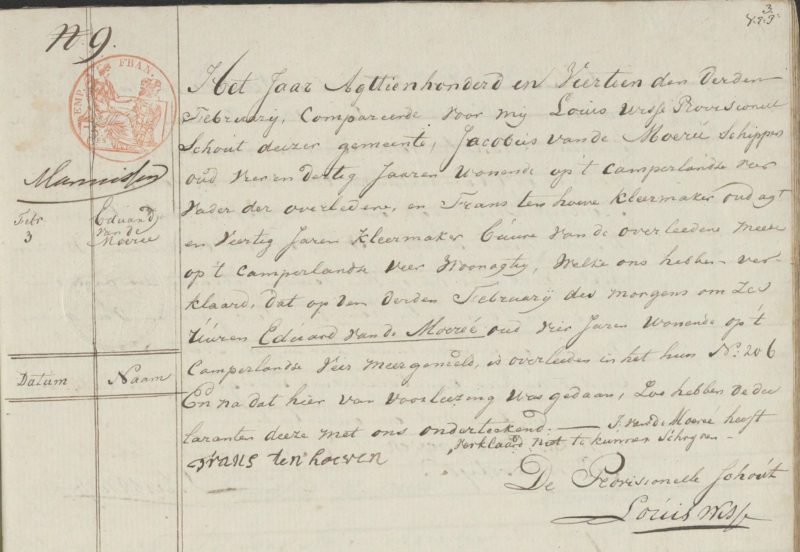 N 9.
3.
EMP. FRAN.
Het Jaar Agttienhonderd en Vierteen den derden
February, Compareerde voor my Louis Wisse Provisioneel
Schout deezer gemeente, Jacobus van de Moeree Schipper
oud vier en dertig Jaaren Wonende op't Camperlandse veer
Vader der overledene, en Frans ten hoeve kleermaker oud agt
en Veertig Jaren kleermaker buure van de overleedene meede
op't Camperlandse veer Woonagtig, Welke ons hebben ver-
klaard, dat op den derden February des morgens om zes
uuren Eduard van de Moereé oud vier Jaren Wonende op't
Camperlandse Veer meergemeld, is overleeden in het huis No. 206
En na dat hier van voorleezing was gedaan, Zoo hebben de dec
laranten deeze met ons onderteekend. — J. van de Moereé heeft
verklaard niet te kunnen schryven -
frans ten hoeven
De Provisioneele Schout
Louis Wisse
Mannissen
Febr. 3
Eduard van de Moereé
Datum
Naam